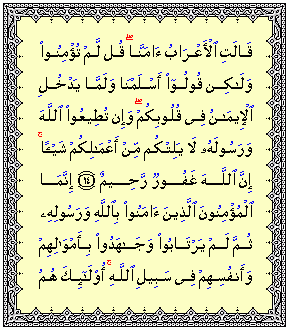 قَالَتِ ٱلْأَعْرَابُ ءَامَنَّا ۖ قُل لَّمْ تُؤْمِنُوا۟
وَلَـٰكِن قُولُوٓا۟ أَسْلَمْنَا وَلَمَّا يَدْخُلِ
ٱلْإِيمَـٰنُ فِى قُلُوبِكُمْ ۖ وَإِن تُطِيعُوا۟ ٱللَّهَ
وَرَسُولَهُۥ لَا يَلِتْكُم مِّنْ أَعْمَـٰلِكُمْ شَيْـًٔا ۚ
إِنَّ ٱللَّهَ غَفُورٌ رَّحِيمٌ ﴿١٤﴾ إِنَّمَا
ٱلْمُؤْمِنُونَ ٱلَّذِينَ ءَامَنُوا۟ بِٱللَّهِ وَرَسُولِهِۦ
ثُمَّ لَمْ يَرْتَابُوا۟ وَجَـٰهَدُوا۟ بِأَمْوَٰلِهِمْ
وَأَنفُسِهِمْ فِى سَبِيلِ ٱللَّهِ ۚ أُو۟لَـٰٓئِكَ هُمُ